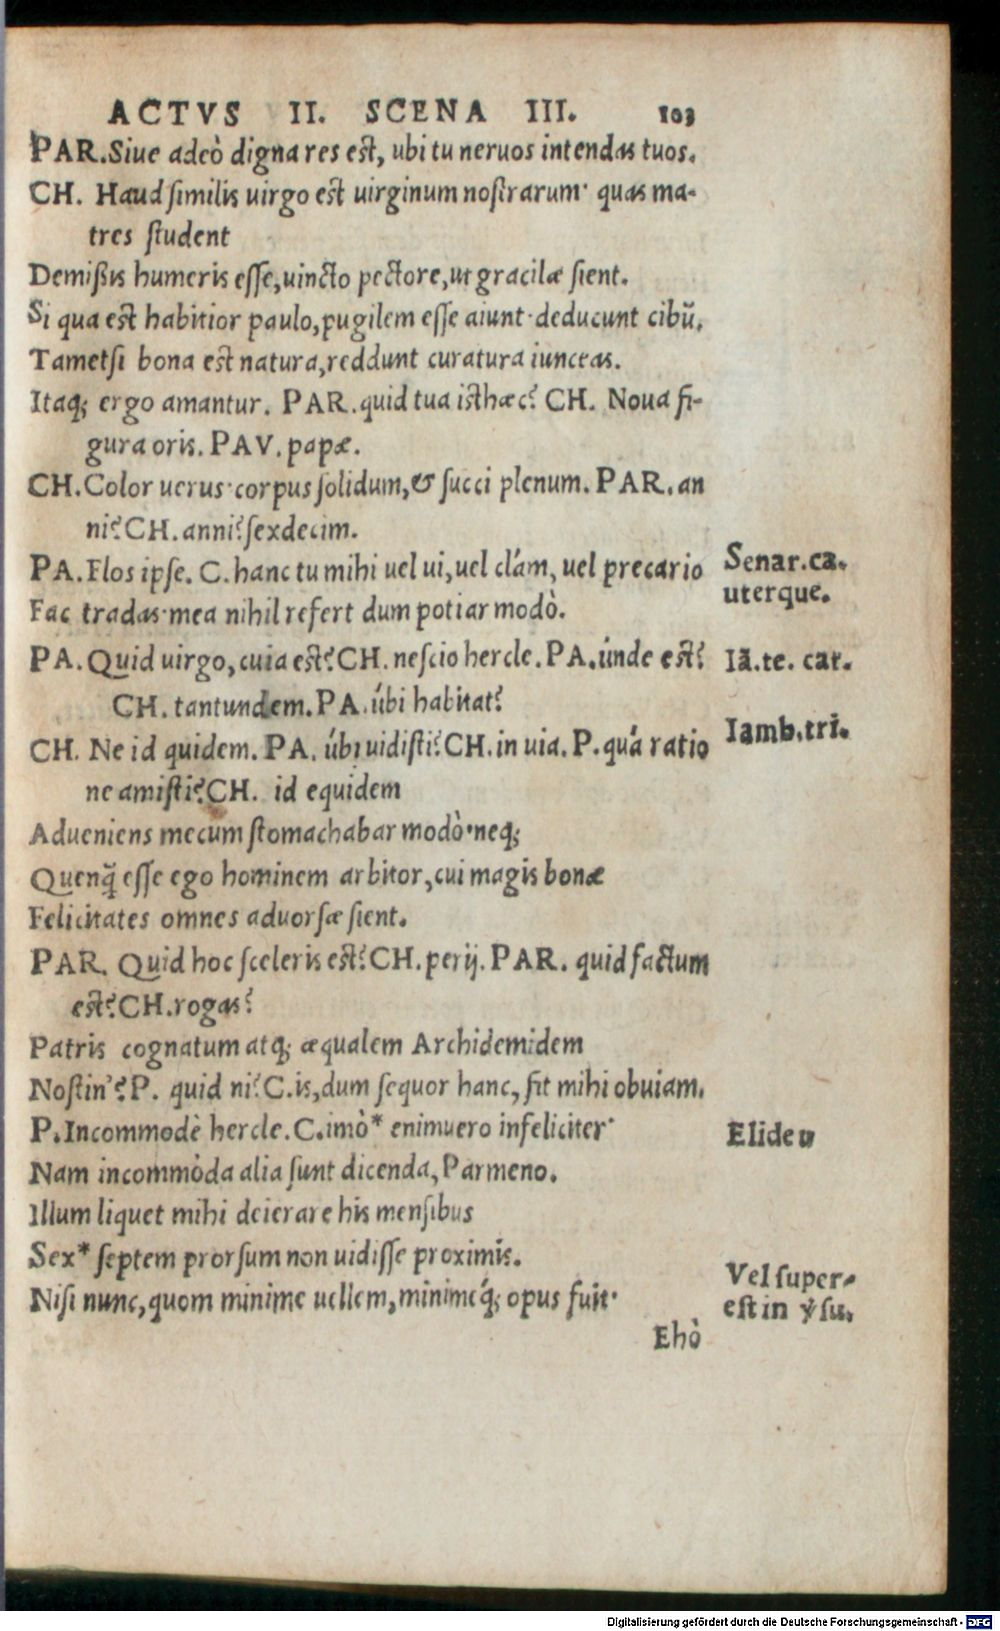 ACTVS II. SCENA III. 103
PAR. Siue adeò digna res est, ubi tu neruos intendas tuos.
CH. Haud similis uirgo est uirginum nostrarum· quas ma-
tres student
Demißis humeris esse, uincto pectore, ut gracilæ sient.
Si qua est habitior paulo, pugilem esse aiunt· deducunt cibũ.
Tametsi bona est natura, reddunt curatura iunceas.
Itaq; ergo amantur. PAR. quid tua isthæc? CH. Noua fi-
gura oris. PAV. papæ.
CH. Color uerus· corpus solidum, & succi plenum. PAR. an
ni? CH. anni? sexdecim.
PA. Flos ipse. C. hanc tu mihi uel ui, uel clám, uel precario
Senar. ca.
uterque.
Fac tradas· mea nihil refert dum potiar modò.
PA. Quid uirgo, cuia est? CH. nescio hercle. PA. únde est?
Iã. te. cat.
CH. tantundem. PA. úbi habitat?
CH. Ne id quidem. PA. úbi uidisti? CH. in uia. P. quá ratio
Iamb. tri.
ne amisti? CH. id equidem
Adueniens mecum stomachabar modò· neq;
Quenq̃ esse ego hominem arbitor, cui magis bonæ
Felicitates omnes aduorsæ sient.
PAR. Quid hoc sceleris est? CH. perij. PAR. quid factum
est? CH. rogas?
Patris cognatum atq; æqualem Archidemidem
Nostin'? P. quid ni? C. is, dum sequor hanc, fit mihi obuiam.
P. Incommodè hercle. C. imò* enimuero infeliciter·
Elide u
Nam incommòda alia sunt dicenda, Parmeno.
Illum liquet mihi deierare his mensibus
Sex* septem prorsum non uidisse proximis.
Vel super-
est in ỷ su.
Nisi nunc, quom minime uellem, minimeq́; opus fuit·
Ehò
Digitalisierung gefördert durch die Deutsche Forschungsgemeinschaft - DFG